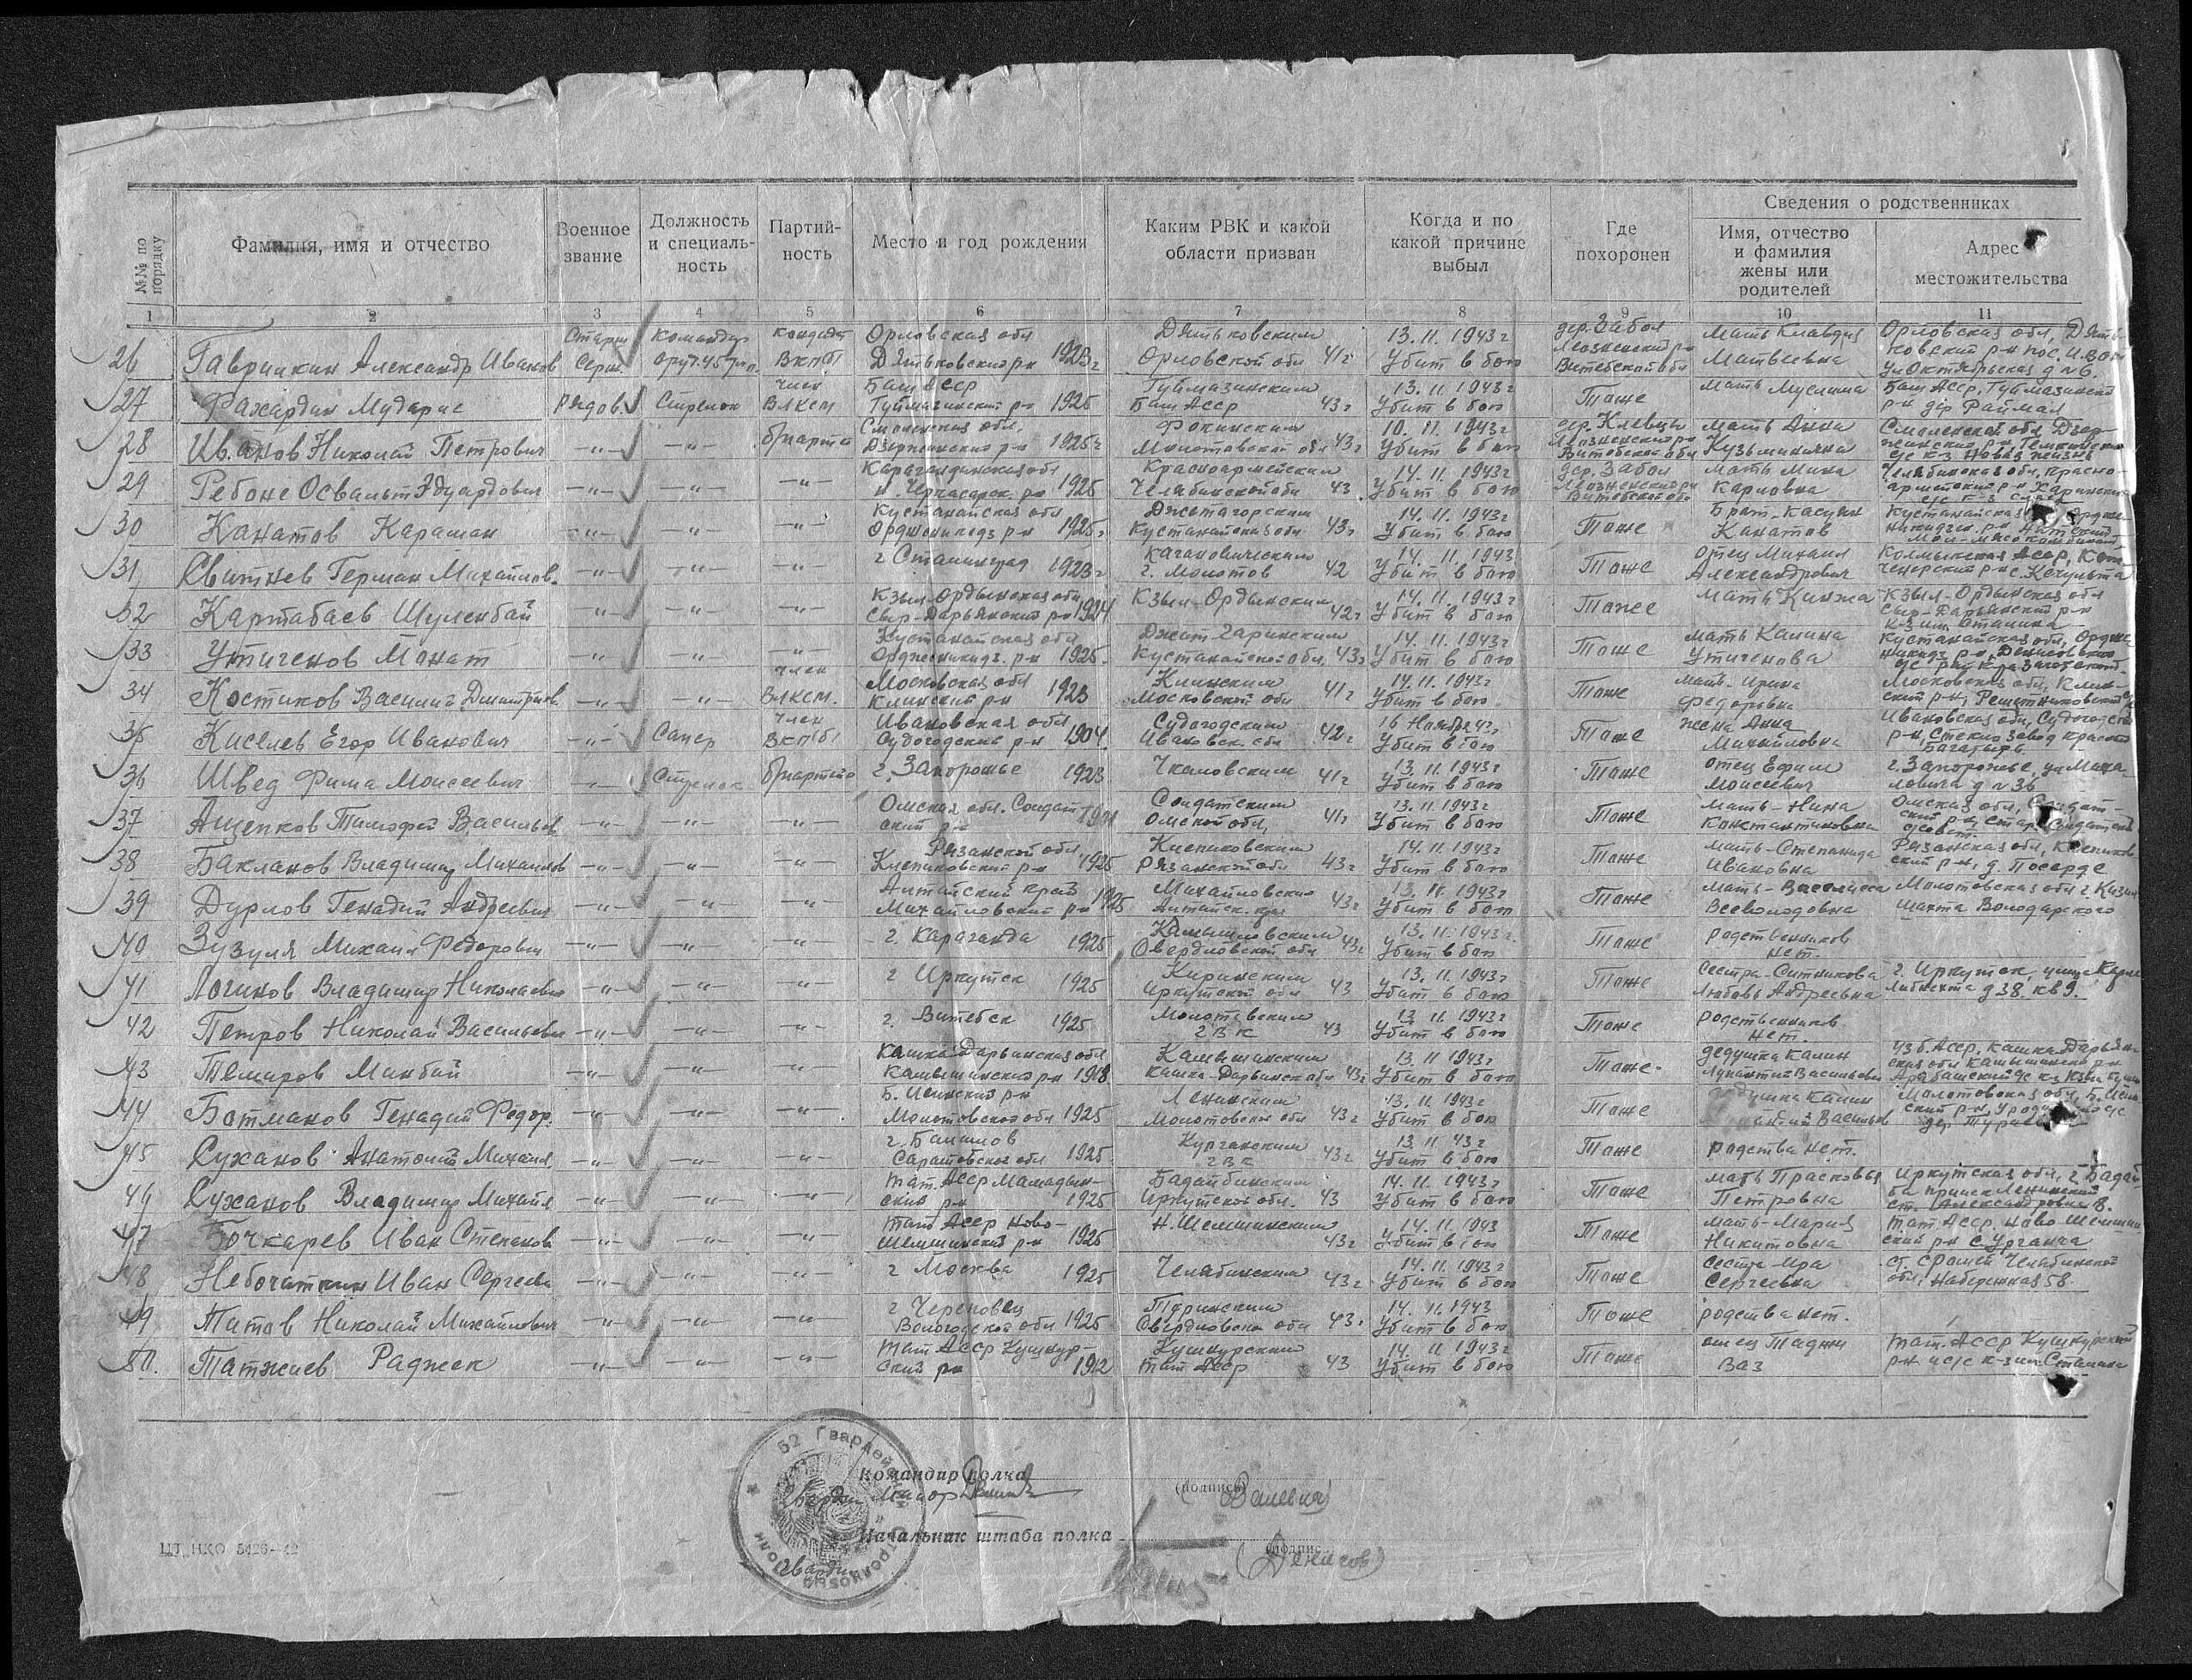 №№ по порядку
Фамилия, имя и отчество
Военное звание
Должность и специаль-ность
Партий-ность
Место и год рождения
Каким РВК и какой области призван
Когда и по какой причине выбыл
Где похоронен
Сведения о родственниках
Имя, отчество и фамилия жены или родителей
Адрес местожительства
1 2 3 4 5 6 7 8 9 10 11
26 Гаврикин Александр Иванов Старш Серж. Командир оруд. 45 Орловская обл Дятьковский р-н 1923г Дятьковским Орловской обл 41г 13.11.1943г Убит в бою дер. Забол Лиозненский р-н Витебской обл мать Клавдия Матвеевна Орловская обл, Дять-ковский р-н пос. Ул Октябрьская д №6.
27 Фахардин Мударис Рядов. Стрелок член ВЛКСМ Баш АССР Туймазинский р-н 1925 Туймазинским Баш АССР 43г 13.11.1943г Убит в бою Тоже мать Муслима Баш АССР, Туймазинский р-н дер Раймал
28 Иванов Николай Петрович —"— —"— б/партб Смоленская обл. Дзержинский р-н 1925г Фокинским Молотовской обл 43г 10.11.1943г Убит в бою дер. Клевцы Лиозненский р-н Витебской обл мать Анна Кузьминична Смоленская обл, Дзер-жинский р-н с/с к-з Новая жизнь
29 Ребоне Освальт Эдуардович —"— —"— —"— Карагандинская обл 1925 Красноармейским Челябинской обл 43 14.11.1943г Убит в бою дер. Забол Лиозненский р-н Витебской обл мать Мина Карловна Челябинская обл, Красно-армейский р-н
30 Канатов Караман —"— —"— —"— Кустанайская обл Орджоникидз р-н 1925г Джетагорским Кустанайской обл 43г 14.11.1943г Убит в бою Тоже Брат Канатов Кустанайская
31 Свитнев Герман Михайлов. —"— —"— —"— г Сталинград 1923г Кагановическим г. Молотов 42 14.11.1943 Убит в бою Тоже Отец Михаил Александрович Колмыкская АССР, Кет-ченерский р-н с. Кегульта
32 Картабаев Шуленбай —"— —"— —"— Кзыл-Ординская обл Сыр-Дарьинский р-н 1924 Кзыл-Ординским 42г 14.11.1943г Убит в бою Тоже мать Кинжа Кзыл-Ординская обл Сыр-Дарьинский р-н к-з им Сталина
33 Утигенов Монат —"— —"— —"— Кустанайская обл Орджоникидз. р-н 1925. Джит Гаринским Кустанайской обл. 43г 14.11.1943г Убит в бою Тоже мать Калина Утигенова Кустанайская обл, Орджо-никидз р-н, Денисовский
34 Костиков Василий Дмитриев. —"— —"— член ВЛКСМ. Московская обл Клинский р-н 1923 Клинским Московской обл 41г 14.11.1943г Убит в бою. Тоже мать-Ирина Федоровна Московская обл, Клин-ский р-н, Решетниковский
35 Киселев Егор Иванович —"— Сапер член ВКП/б/ Ивановская обл Судогодский р-н 1904. Судогодским Ивановск обл 42г 16 Ноября 43г Убит в бою Тоже жена Анна Михайловна Ивановская обл, Судогодск р-н, Стекло завод красный Багатырь
36 Швед Фима Моисеевич —"— Стрелок б/партб г. Запорожье 1923 Чкаловским 41г 13.11.1943г Убит в бою Тоже отец Ефим Моисеевич г. Запорожье, д №36
37 Ащепков Тимофей Васильев —"— —"— —"— Омская обл. Солдат-ский р-н 1921 Солдатским Омской обл, 41г 13.11.1943г Убит в бою Тоже мать-Нина Константиновна Омская обл,
38 Бакланов Владимир Михайлов —"— —"— —"— Рязанской обл, Клепиковский р-н 1925 Клепиковским Рязанской обл 43г 14.11.1943г Убит в бою Тоже мать-Степанида Ивановна Рязанская обл, Клепиков ский р-н, д. Посерде
39 Дурлов Генадий Андреевич —"— —"— —"— Алтайский край Михайловский р-н 1925 Михайловским Алтайск. края 43г 13.11.1943г Убит в бою Тоже мать-Васелисса Всеволодовна Молотовская обл г. Кизил Шахта Володарского
40 Зузуля Михаил Федорович —"— —"— —"— г. Караганда 1925 Камышловским Свердловской обл 43г 13.11.1943г. Убит в бою Тоже родственников нет.
41 Логинов Владимир Николаевич —"— —"— —"— г Иркутск 1925 Киринским Иркутской обл 43 13.11.1943г Убит в бою Тоже Сестра-Ситникова Любовь Андреевна г. Иркутск, улица Карла Либкнехта д 38. кв 9.
42 Петров Николай Васильевич —"— —"— —"— г. Витебск 1925 Молотовским ГВК 43 13.11.1943г Убит в бою Тоже родственников нет.
43 Темиров Минбай —"— —"— —"— Кашка-Дарьинская обл Камышинский р-н 1918 Камышинским Кашка-Дарьинск обл 43г 13.11.1943г Убит в бою Тоже. дедушка Калин Васильевич Узб. АССР, Кашка Дарьин-ская обл Камышинский р-н
44 Ботманов Генадий Федор. —"— —"— —"— Б. Усинский р-н Молотовской обл 1925 Ленинским Молотовской обл 43г 13.11.1943г Убит в бою Тоже дедушка Калин Васильев Молотовская обл, Б. Усин-ский р-н
45 Суханов Анатолий Михаил. —"— —"— —"— г. Балашов Саратовской обл 1925. Курганским ГВК 43г 13.11.43г Убит в бою Тоже родства нет.
46 Суханов Владимир Михаил —"— —"— —"— Тат. АССР Мамадыш-ский р-н 1925 Бадайбинским Иркутской обл. 43 14.11.1943г Убит в бою Тоже мать Прасковья Петровна Иркутская обл, г Бадай-ба прииск Ленинский ст. Александровна 8.
47 Бочкарев Иван Степанов —"— —"— —"— Тат АССР Ново-Шешминский р-н 1925 Н.Шешминским 43г 14.11.1943 Убит в бою Тоже мать-Мария Никитовна Тат. АССР. Ново Шешмин ский р-н с. Урганча
48 Небочаткин Иван Сергеев —"— —"— —"— г Москва 1925 Челябинским 43г 14.11.1943г Убит в бою Тоже Сестра-Ира Сергеевна Челябинской обл, Набережная 58.
49 Титов Николай Михайлович —"— —"— —"— г Череповец Вологодской обл 1925 Свердловской обл 43г 14.11.1943 Убит в бою Тоже родства нет.
50. Татжиев Раджек —"— —"— —"— Тат АССР Кушкур-ский р-н 1912 Кушкурским Тат АССР 43 14.11.1943г Убит в бою Тоже отец Таджи Ваз Тат. АССР Кушкурский р-н и с/с к-з им. Сталина
52 Гвардейский Стрелковый полк
Командир полка
Гвардии Майор
(подпись)
Начальник штаба полка
Гвардии
(подпись)
(Денисов)
ЦТ НКО 5426—42